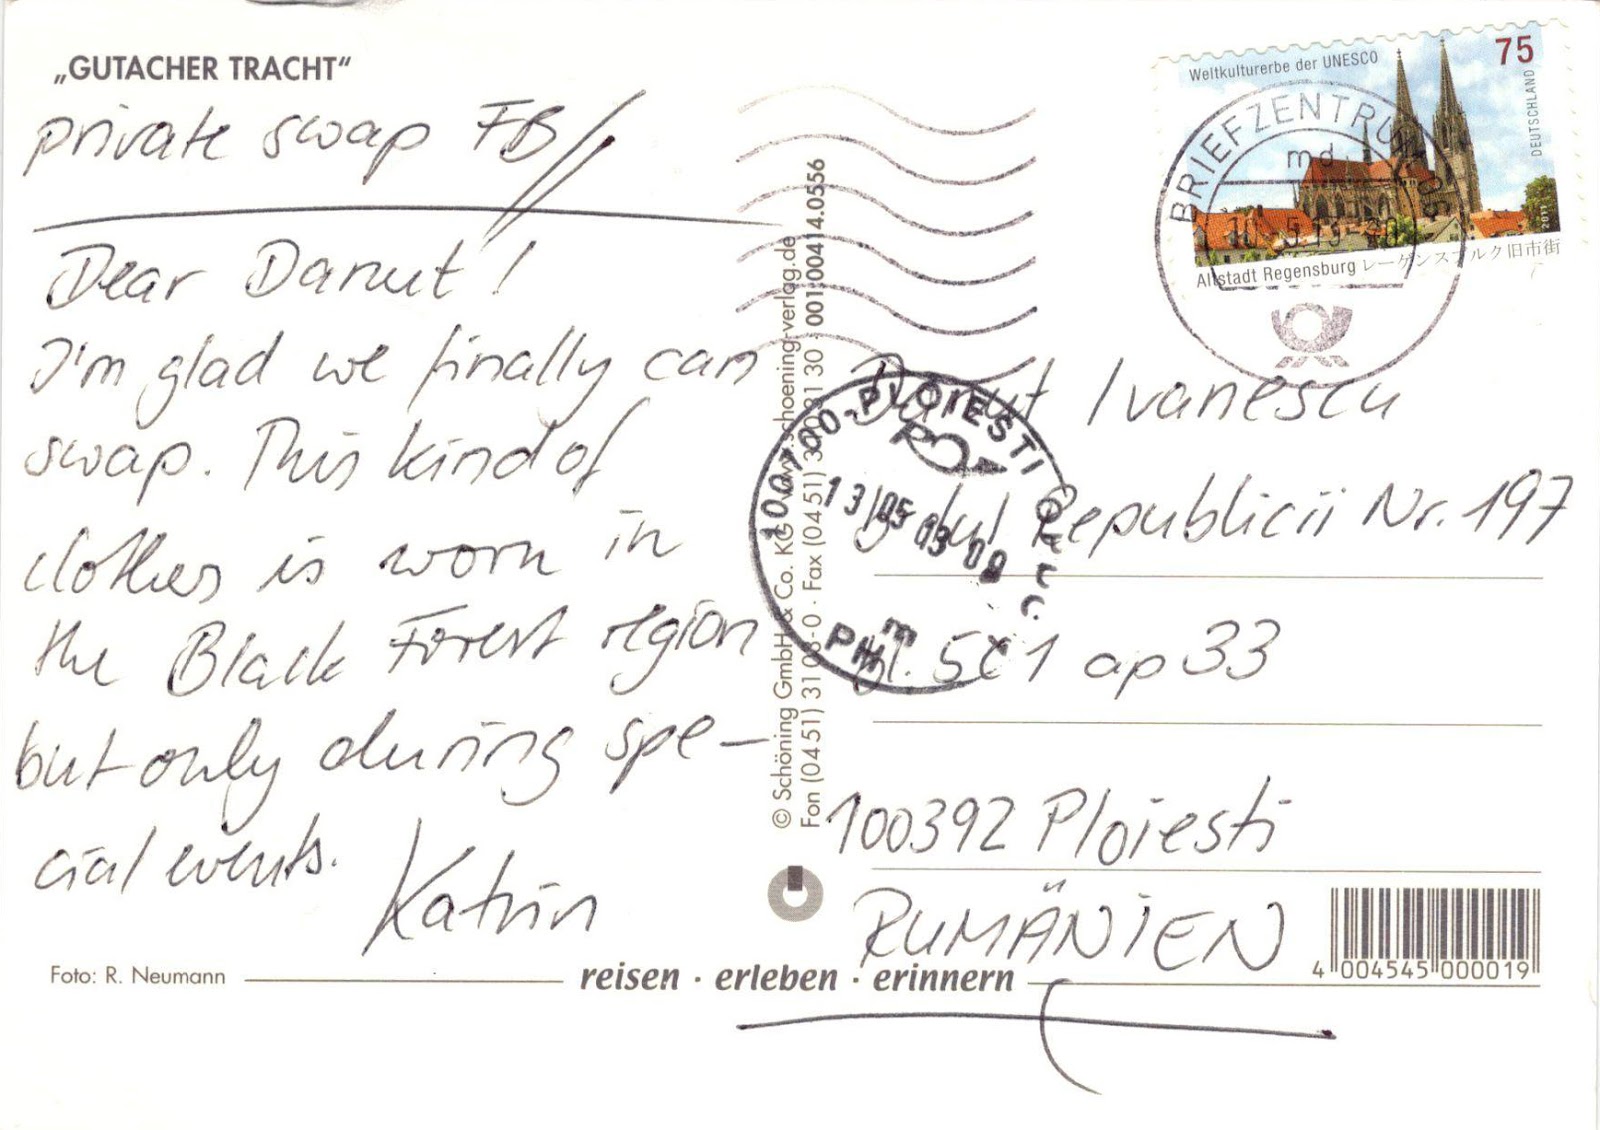 „GUTACHER TRACHT“
private swap FB//
Dear Danut!
I'm glad we finally can
swap. This kind of
clothes is worn in
the Black Forest region
but only during spe-
cial events.
Katrin
Foto: R. Neumann
reisen · erleben · erinnern
© Schöning GmbH & Co. KG · www.schoening-verlag.de
Fon (04 51) 31 03-0 · Fax (04 51) 31 30 · 001.00414.0556
Weltkulturerbe der UNESCO
75
DEUTSCHLAND
2011
Altstadt Regensburg レーゲンスブルク旧市街
BRIEFZENTRUM
md
100700-PLOIESTI
13
05
09
PH
m
Danut Ivanescu
Republicii Nr. 197
ap 33
100392 Ploiesti
RUMÄNIEN
4 004545 000019